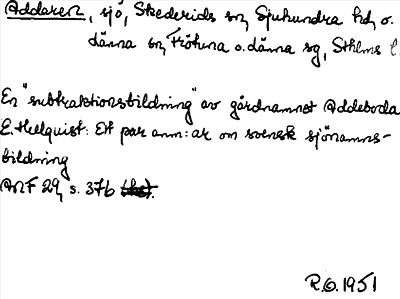 Addaren, sjö, Skederids sn, Sjuhundra hd, o.
därma sn, Fröhuna o. därma sg, Sthlms l.
En "subtraktionsbildning" av gårdnamnet Addeboda
E. Hellquist: Ett par anm:ar om svensk sjönamns-
bildning
ANF 29, s. 376
R.O. 1951